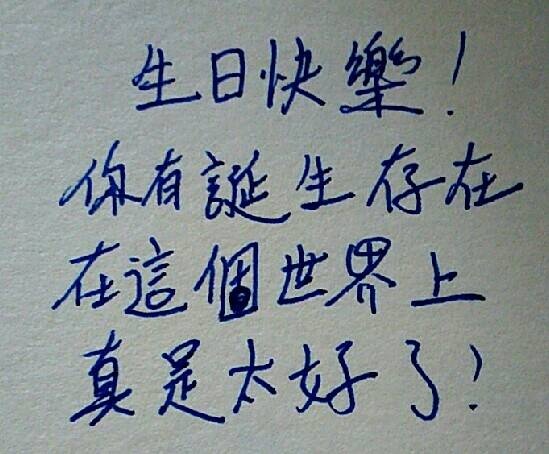 生日快樂！
你有誕生存在
在這個世界上
真是太好了！